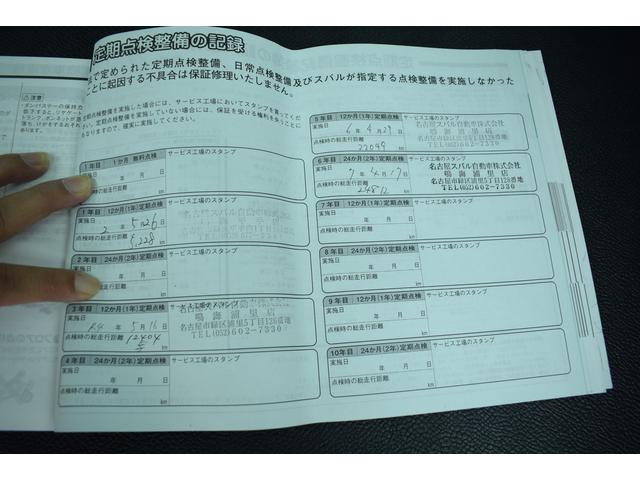 定期点検整備の記録
で定められた定期点検整備、日常点検整備及びスバルが指定する点検整備を実施しなかった
ことに起因する不具合は保証修理いたしません。
定期点検整備を実施した場合には、サービス工場においてスタンプを貰ってくだ
さい。定期点検整備を実施していない場合には、保証を受ける権利を失うことに
なりますので、確実に実施してください。
注意
1年目 1か月 無料点検 サービス工場のスタンプ
実施日
年 月 日
点検時の総走行距離
km
1年目 12か月(1年)定期点検 サービス工場のスタンプ
実施日
2年 5月26日
点検時の総走行距離 5,228 km
2年目 24か月(2年)定期点検 サービス工場のスタンプ
実施日
年 月 日
点検時の総走行距離
km
3年目 12か月(1年)定期点検 サービス工場のスタンプ
実施日
R4年 5月16日
点検時の総走行距離 12404 km
鳴海浦里店
名古屋市緑区浦里5丁目128番地
TEL(052)602-7330
4年目 24か月(2年)定期点検 サービス工場のスタンプ
実施日
年 月 日
点検時の総走行距離
km
5年目 12か月(1年)定期点検 サービス工場のスタンプ
実施日
6年 4月29日
点検時の総走行距離 22099 km
名古屋スバル自動車株式会社
鳴海浦里店
名古屋市緑区浦里5丁目128番地
TEL(052)602-7330
6年目 24か月(2年)定期点検 サービス工場のスタンプ
実施日
7年 4月17日
点検時の総走行距離 24812 km
名古屋スバル自動車株式会社
鳴海浦里店
名古屋市緑区浦里5丁目128番地
TEL(052)602-7330
7年目 12か月(1年)定期点検 サービス工場のスタンプ
実施日
年 月 日
点検時の総走行距離
km
8年目 24か月(2年)定期点検 サービス工場のスタンプ
実施日
年 月 日
点検時の総走行距離
km
9年目 12か月(1年)定期点検 サービス工場のスタンプ
実施日
年 月 日
点検時の総走行距離
km
10年目 24か月(2年)定期点検 サービス工場のスタンプ
実施日
年 月 日
点検時の総走行距離
km